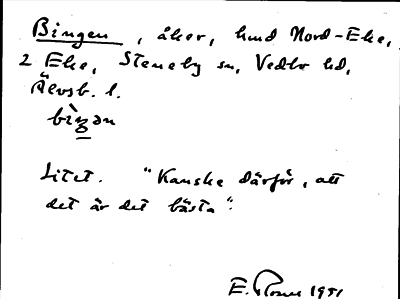 Bingen, åker, hmd Nord-Eke,
2 Eke, Steneby sn, Vedbo hd,
Älvsb. l.
bìŋən
Litet. "Kanske därför, att
det är det bästa".
E. 1951